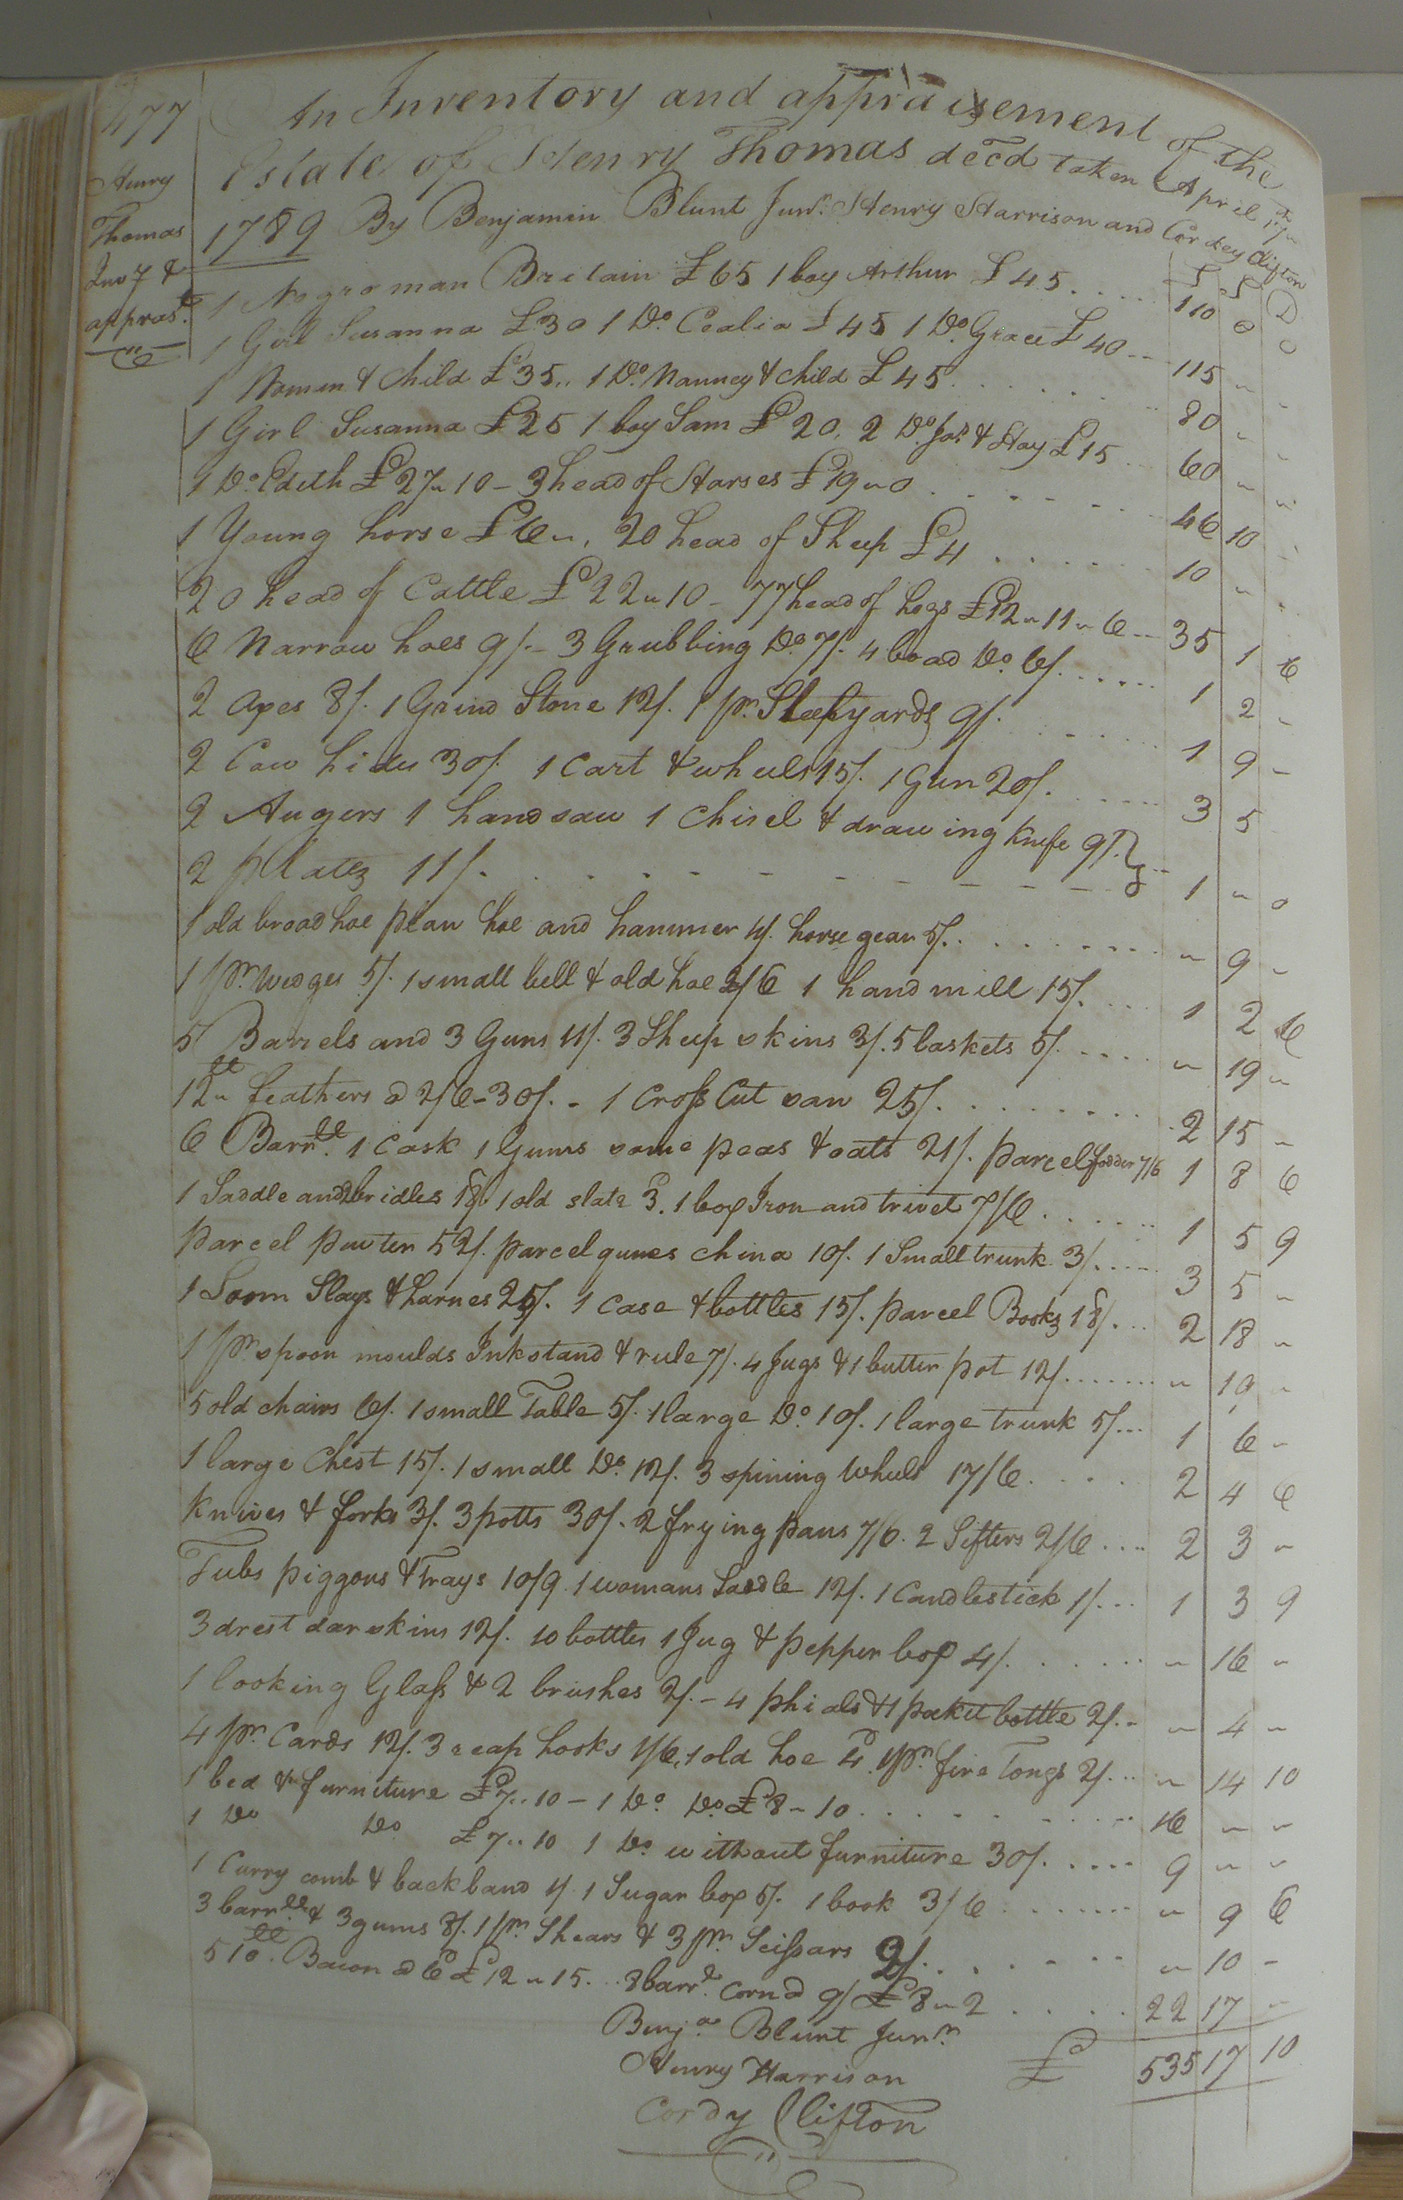 477
Henry
Thomas
Inv.y &
apprast.
An Inventory and appraisement of the
Estate of Henry Thomas decd taken April
1789 By Benjamin Blunt Junr. Henry Harrison and Cordey Clifton
£ S D
1 Negro man Britain £65 1 boy Arthur £45 .... 110 0 0
1 Girl Susanna £30 1 Do. Cealia £45 1 Do. Grace £40 -- 115 " "
1 Woman & Child £35,, 1 Do. Nanney & child £45 ...... 80 " "
1 Girl Susanna £25 1 boy Sam £20, 2 Do. Jas. & Hay £15 .. 60 " "
1 Do. Edith £27 " 10 - 3 head of Horses £19 " 0 ...... 46 10 "
1 Young horse £6 ",, 20 head of Sheep £4 ...... 10 " "
20 head of Cattle £22 " 10 - 77 head of hogs £12 " 11 " 6 -- 35 1 6
6 Narrow hoes 9/. - 3 Grubbing Do. 7/. 4 broad Do. 6/. ..... 1 2 "
2 axes 8/. 1 Grind Stone 12/. 1 pr. Steelyards 9/. ..... 1 9 "
2 Cow hides 30/. 1 Cart & wheels 15/. 1 Gun 20/. .... 3 5
2 Augers 1 handsaw 1 Chisel & drawing knife 9/. }
2 plates 11/. - - - - - - - - - } 1 " 0
1 old broad hoe plow hoe and hammer 4/. horse gear 5/. ....... " 9 "
1 pr. wedges 5/. 1 small bell & old hoe 2/6 1 hand mill 15/. ... 1 2 6
5 Barrels and 3 Gums 11/. 3 Sheep skins 3/. 5 baskets 5/. .... " 19 "
12 " lb feathers @ 2/6 - 30/. - 1 Cross Cut saw 25/. ........ 2 15 "
6 Barrlls. 1 Cask 1 Gums some peas & oats 21/. parcel fodder 7/6 1 8 6
1 Saddle and 2 bridles 18/. 1 old slate 3d. 1 box Iron and trivet 7/6 ...... 1 5 9
parcel pewter 52/. parcel queens china 10/. 1 Small trunk 3/. .... 3 5 "
1 Loom Slays & harnes 25/. 1 Case & bottles 15/. parcel Books 18/. .. 2 18 "
1 pr. spoon moulds Inkstand & rule 7/. 4 Jugs & 1 butter pot 12/. ...... " 19 "
5 old chairs 6/. 1 small Table 5/. 1 large Do. 10/. 1 large trunk 5/. ... 1 6 "
1 large Chest 15/. 1 small Do. 12/. 3 spining Wheels 17/6 .... 2 4 6
Knives & forks 3/. 3 potts 30/. 2 frying pans 7/6. 2 Sifters 2/6 .... 2 3 "
Tubs piggons & Trays 10/9 1 womans Saddle 12/. 1 Candlestick 1/. ... 1 3 9
3 drest dear skins 12/. 10 bottles 1 Jug & pepper box 4/. ...... " 16 "
1 looking Glass & 2 brushes 2/. - 4 phials & 1 pocket bottle 2/. - " 4 "
4 pr. Cards 12/. 3 reap hooks 1/6, 1 old hoe 4d. 1 pr. fire Tongs 2/. .. " 14 10
1 bed & furniture £7 ,, 10 - 1 Do. Do. £8 " 10 ........ 16 " "
1 Do Do £7 ,, 10 1 Do without furniture 30/. ..... 9 " "
1 Curry comb & back band 1/ 1 Sugar box 5/. 1 book 3/6 ....... " 9 6
3 barrlls. & 3 gums 8/. 1 pr. Shears & 3 pr. Scissars 2/. ...... " 10 -
510 lb. Bacon @ 6d £12 " 15 .. 8 barrl. Corn @ 9/ £8 " 2 .... 22 17 "
Benja. Blunt Junr. £ 535 17 10
Henry Harrison
Cordy Clifton